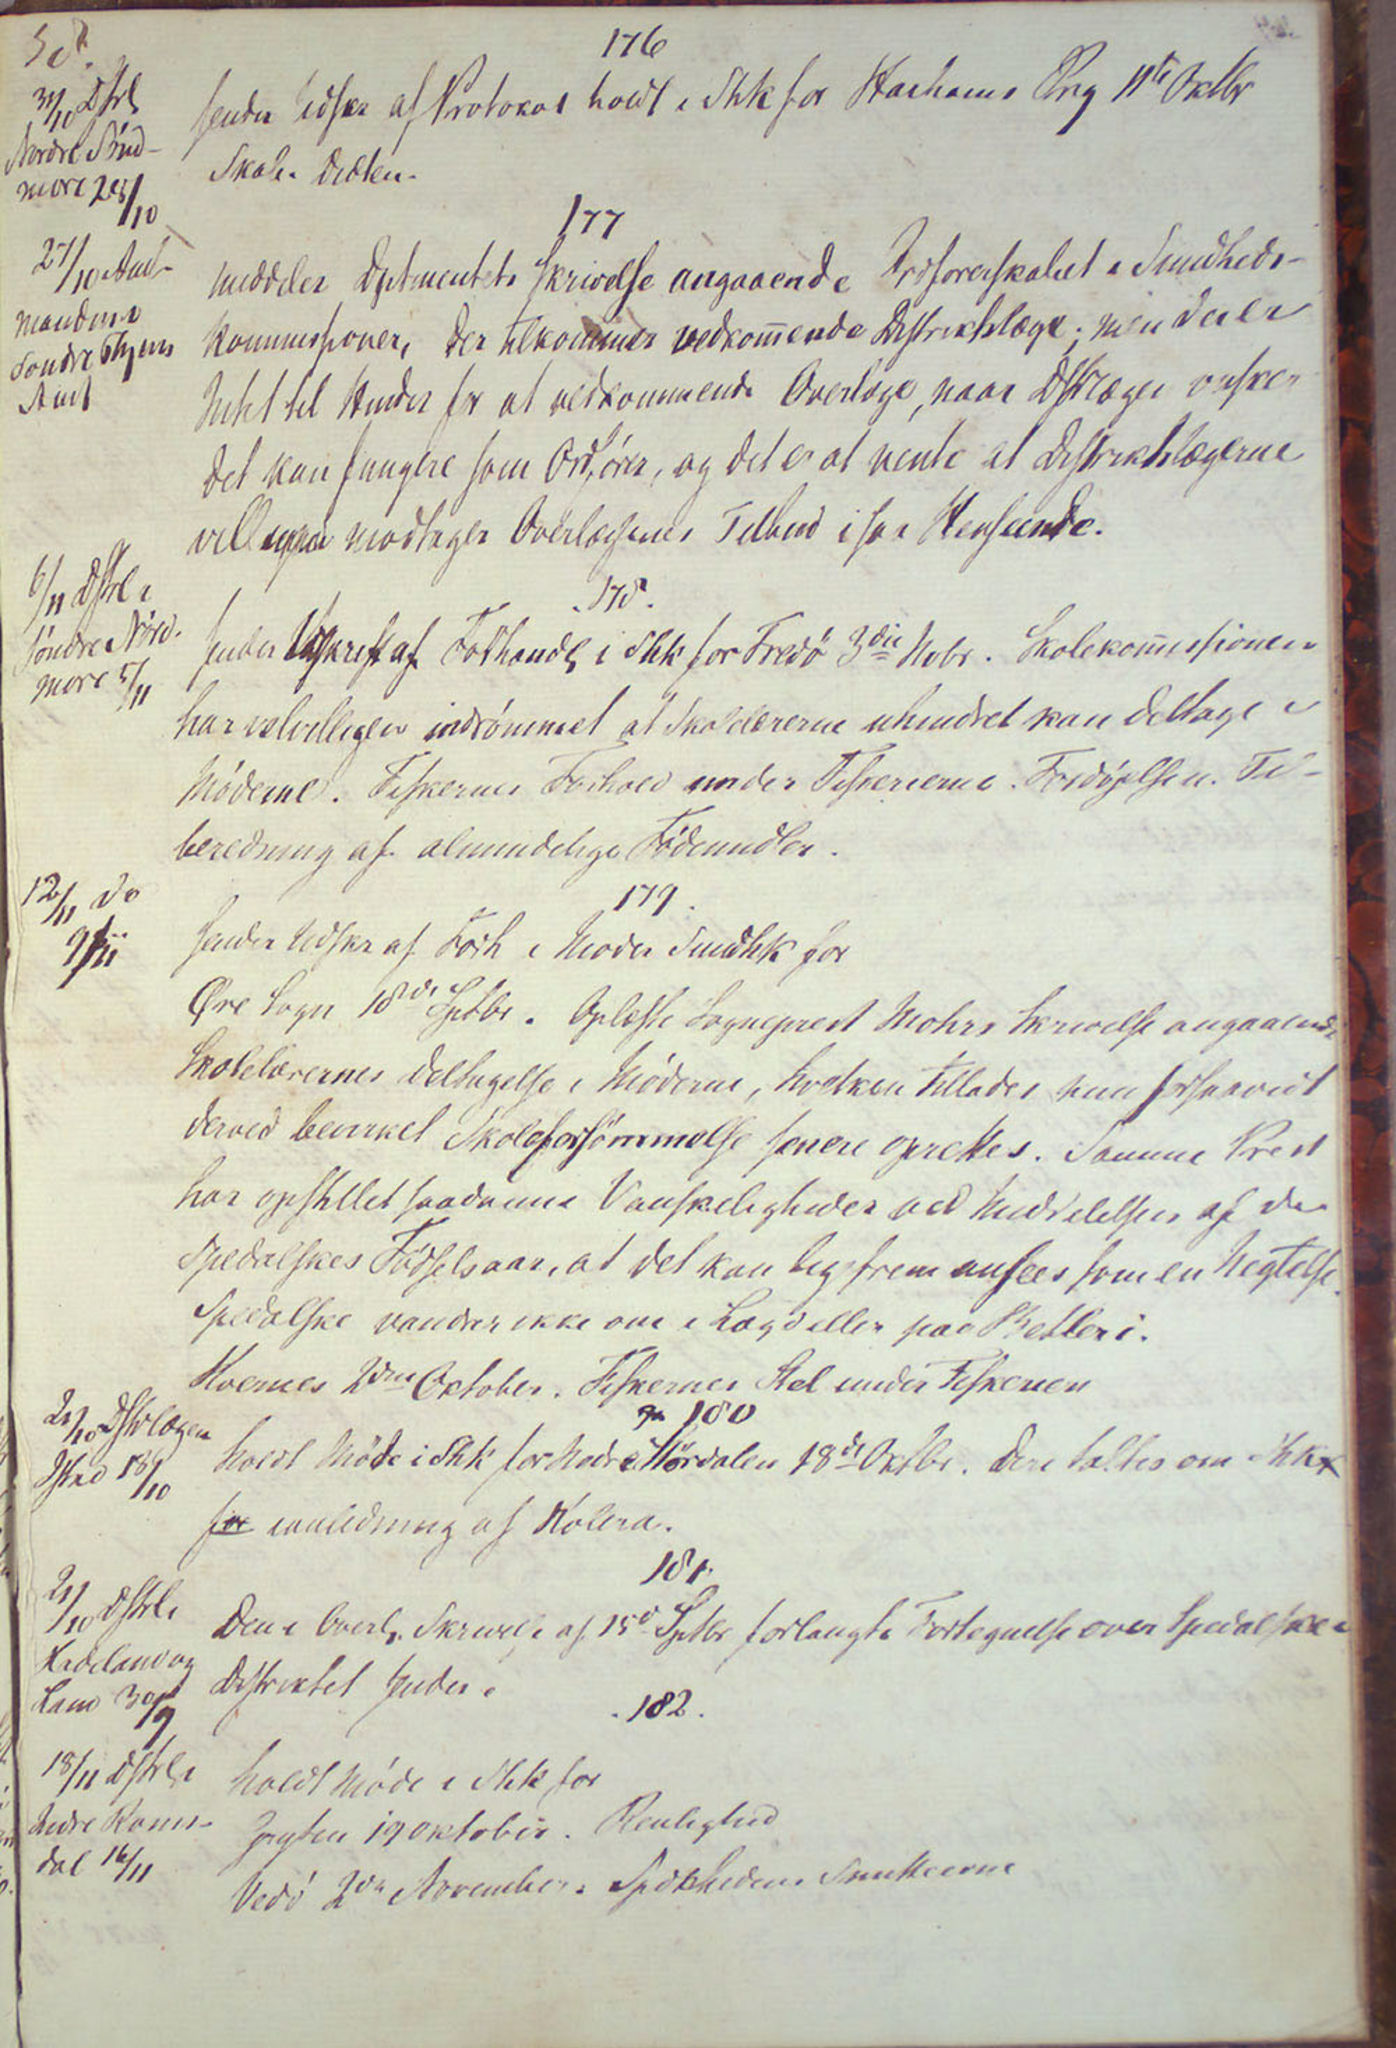 176
31/10 Dstrl
Nordre Sönd-
more 28/10
sender Udskr af Protokol holdt i Shk for Harhams Prg 11te Oktbr
Skole Diæten.
177
27/10 Amt-
manden i
Sondre Thjems
Amt
meddeler Dptmentets Skrivelse angaaende Ordforerskabet i Sundheds-
kommissioner, der tilkommer vedkommende Distriktslæge; men der er
Intet til Hinder for at vedkommende Overlæge, naar Dstrlægen onsker
det kan fungere som Ordförer, og det er at vente at Distriktslægerne
ville modtager Overlægernes Tilbud i saa Henseende.
178.
6/11 Dstrl i
Söndre Nörd-
more 5/11
sender Udskrift af Forhandl i Shk for Fredö 3die Nvbr. Skolekommissionen
har velvilligen indrömmet at Skolelærerne uhindret kan deltage i
Möderne. Fiskernes Forhold under Fiskerierne. Fordöielsen. Til-
beredning af almindelige Födemidler.
179.
12/11 do
9/11
sender Udskr af Forh i Moder Sundhk for
Øre Sogn 18de Sptbr. Oplæste Sogneprest Mohrs Skrivelse angaaende
Skolelærernes Deltagelse i Möderne, hvilken tillades kun forsaavidt
derved bevirket Skoleforsömmelse senere oprettes. Samme Prest
har opstillet saadanne Vanskeligheder ved Meddelelsen af de
Spedalskes Födselsaar, at det kan ligefrem ansees som en Negtelse.
Spedalske vandrer ikke om i Lægd eller paa Betleri.
Kvernes 2den Oktober. Fiskernes Stel under Fiskerien
180
21/10 Dstrlægen
18/10
holdt Möde i Shk for Nedre Stördalen 18de Oktbr. Der taltes om Shk
for i anledning af Kolera.
181.
21/10 Dstrl i
Hadeland og
Land 30/9
Den i Overl. Skrivelse af 15de Sptbr forlangte Fortegnelse over Spedalske i
Distriktet sendes.
.182.
18/11 Dstrl i
Indre Roms-
dal 16/11
holdt Möde i Shk for
Gryten 19 Oktober. Renlighed
Vedö 2den November.